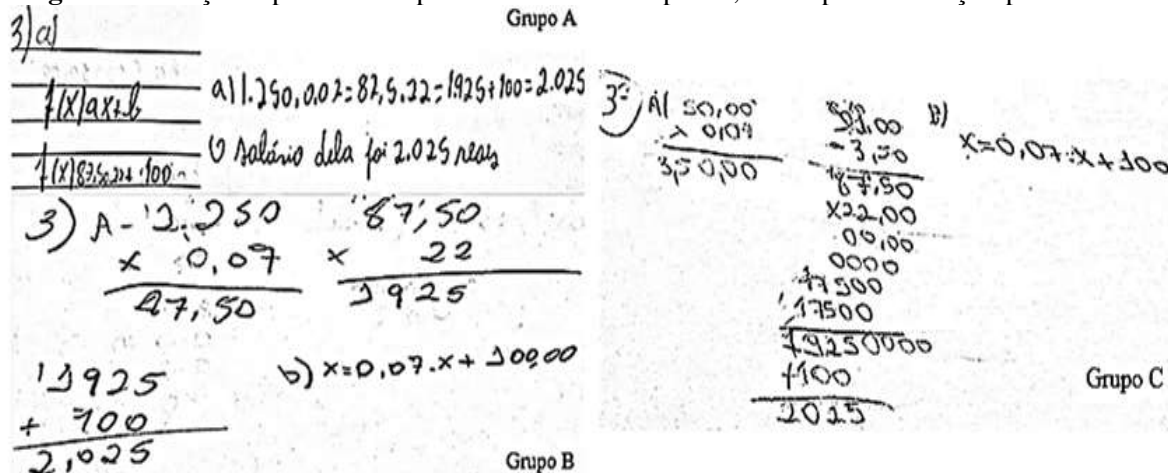 Grupo A
3) a)
f(x)ax+b
f(x)87,5.22+100
a) 1.250,0.07=87,5.22=1925+100=2.025
O salário dela foi 2.025 reais
3) A- 1.250
x 0,07
87,50
87,50
x 22
1925
1925
+ 100
2,025
b) x=0,07.x+100,00
Grupo B
3ª) A) 50,00
x 0,07
3,50,00
- 3,50
87,50
x22,00
00,00
0000
17500
17500
19250000
+100
2025
B)
x=0,07.x+100
Grupo C